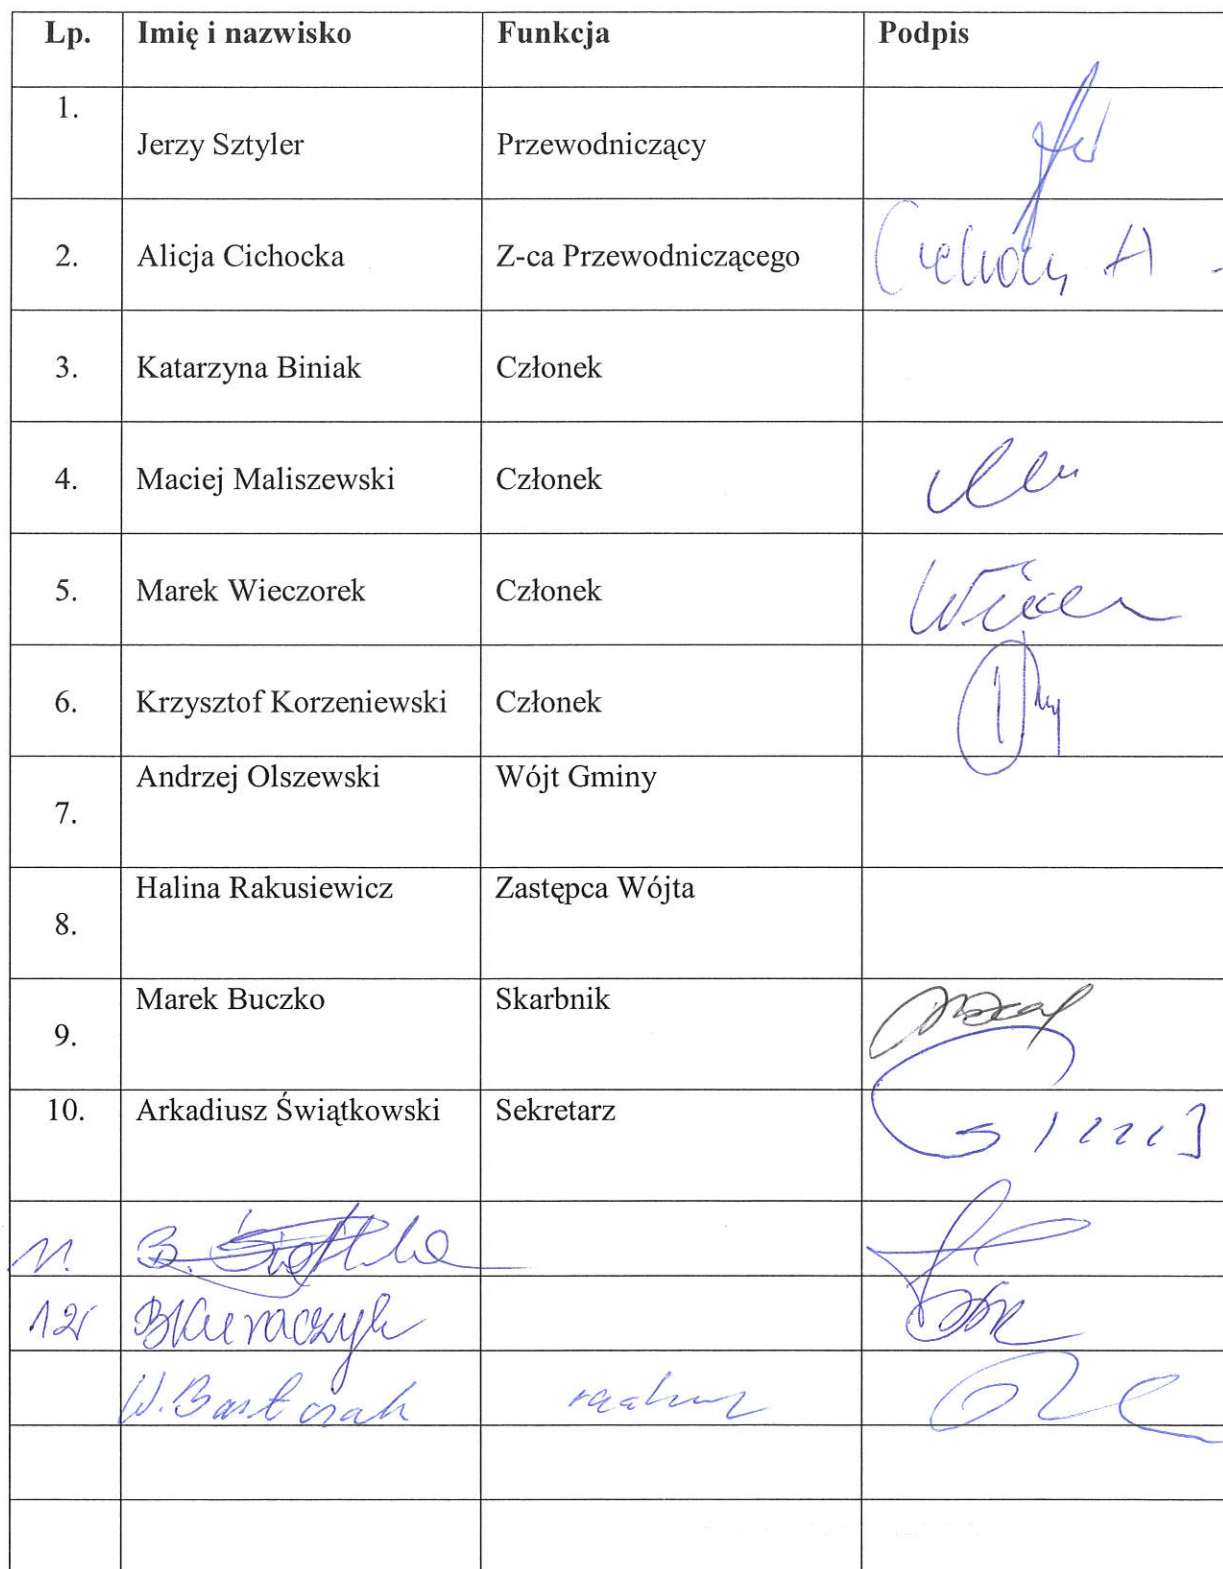 Lp. Imię i nazwisko Funkcja Podpis
1. Jerzy Sztyler Przewodniczący
2. Alicja Cichocka Z-ca Przewodniczącego
3. Katarzyna Biniak Członek
4. Maciej Maliszewski Członek
5. Marek Wieczorek Członek
6. Krzysztof Korzeniewski Członek
7. Andrzej Olszewski Wójt Gminy
8. Halina Rakusiewicz Zastępca Wójta
9. Marek Buczko Skarbnik
10. Arkadiusz Świątkowski Sekretarz
11. B.
12 BKuraczyk
W. Bartczak radny